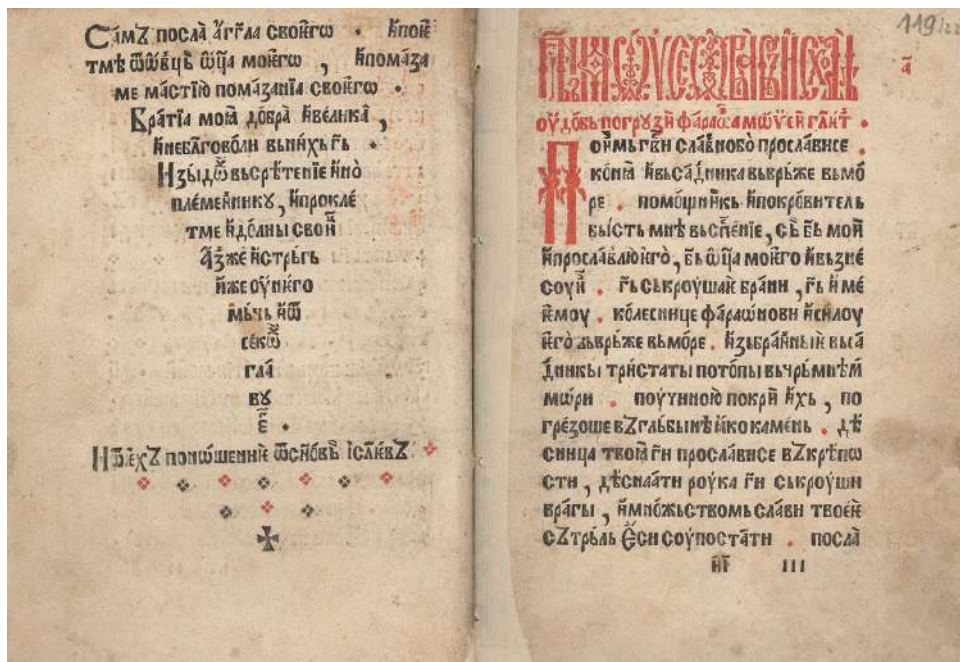 Самъ посла аг҃гла своѥго . и поѥ
тме ѿ ѡвьць ѡц҃а моѥго , и помаза
ме мастїю помазанїа своѥго .
Братїа моꙗ добра и велика ,
и не бл҃говоли вь нихь г҃ь .
Изыдѡⷯ вь срѣтенїе ино
племеннику , и прокле
тме идолны свои
Аз же истрьгь
иже оу нѥго
мьчь и ѿ
секѡⷯ
гла
ву
Понмь г҃ви славно бо прослависе .
конꙗ и вьсадника вьврьже вь мо
ре . помощникь и покровитель
бысть мнѣ вь сп҃сенїе , сь б҃ь мои
и прославлю ѥго , б҃ь ѡц҃а моѥго и вьзне
соу и . г҃ь ськроушаѥ брани , г҃ь име
ѥмоу . колеснице фараѡнови и силоу
ѥго вьврьже вь море . изьбранныѥ вьса
дникы тристаты потопы вь чрьмнѣмь
мѡри . поучиною покри ихь , по
грезоше въ гльбынѣ ꙗко камень . дѣ
сница твоꙗ г҃и прослависе въ крѣпѡ
сти , дѣснаа ти роука г҃и ськроуши
врагы , и множьствомь славы твоѥѥ
сътрьль ѥси соупостати . посла